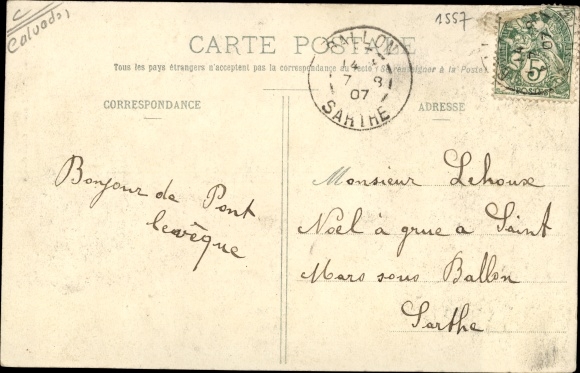 C
Calvados
1557
CARTE POSTALE
Tous les pays étrangers n'acceptent pas la correspondance au recto (Se renseigner à la Poste)
BALLON
14
7 8
07
SARTHE
5
POSTES
07
CORRESPONDANCE
ADRESSE
Bonjour de Pont
levêque
Monsieur Lehoux
Noël à grue à Saint
Mars sous Ballon
Sarthe